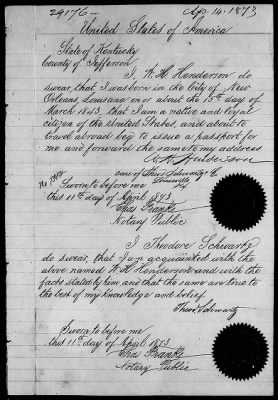 29176- Ap. 14. 1873
United States of America
State of Kentucky
County of Jefferson
I, W. H. Henderson do
swear, that I was born in the City of New
Orleans, Louisiana on or about the 15th day of
March 1843, that I am a native and loyal
citizen of the United States, and about to
travel abroad beg to issue a passport for
me and forward the same to my address
W H Henderson
care of Theo. Schwartz & Co
Louisville
Ky
Sworn to before me
this 11th day of April 1873
Chas Franke
Notary Public
I Theodore Schwartz
do swear, that I am acquainted with the
above named W. H. Henderson and with the
facts stated by him, and that the same are true to
the best of my knowledge and belief.
Theo. Schwartz
Sworn to before me
this 11th day of April 1873.
Chas Franke
Notary Public